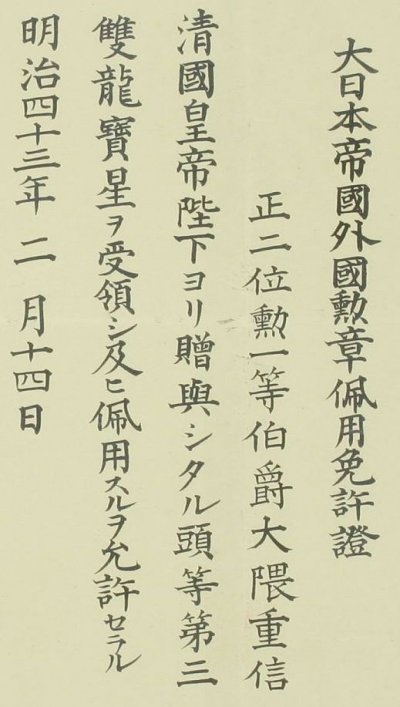 大日本帝國外國勲章佩用免許證
正二位勲一等伯爵大隈重信
清國皇帝陛下ヨリ贈與シタル頭等第三
雙龍寶星ヲ受領シ及ヒ佩用スルヲ允許セラル
明治四十三年二月十四日